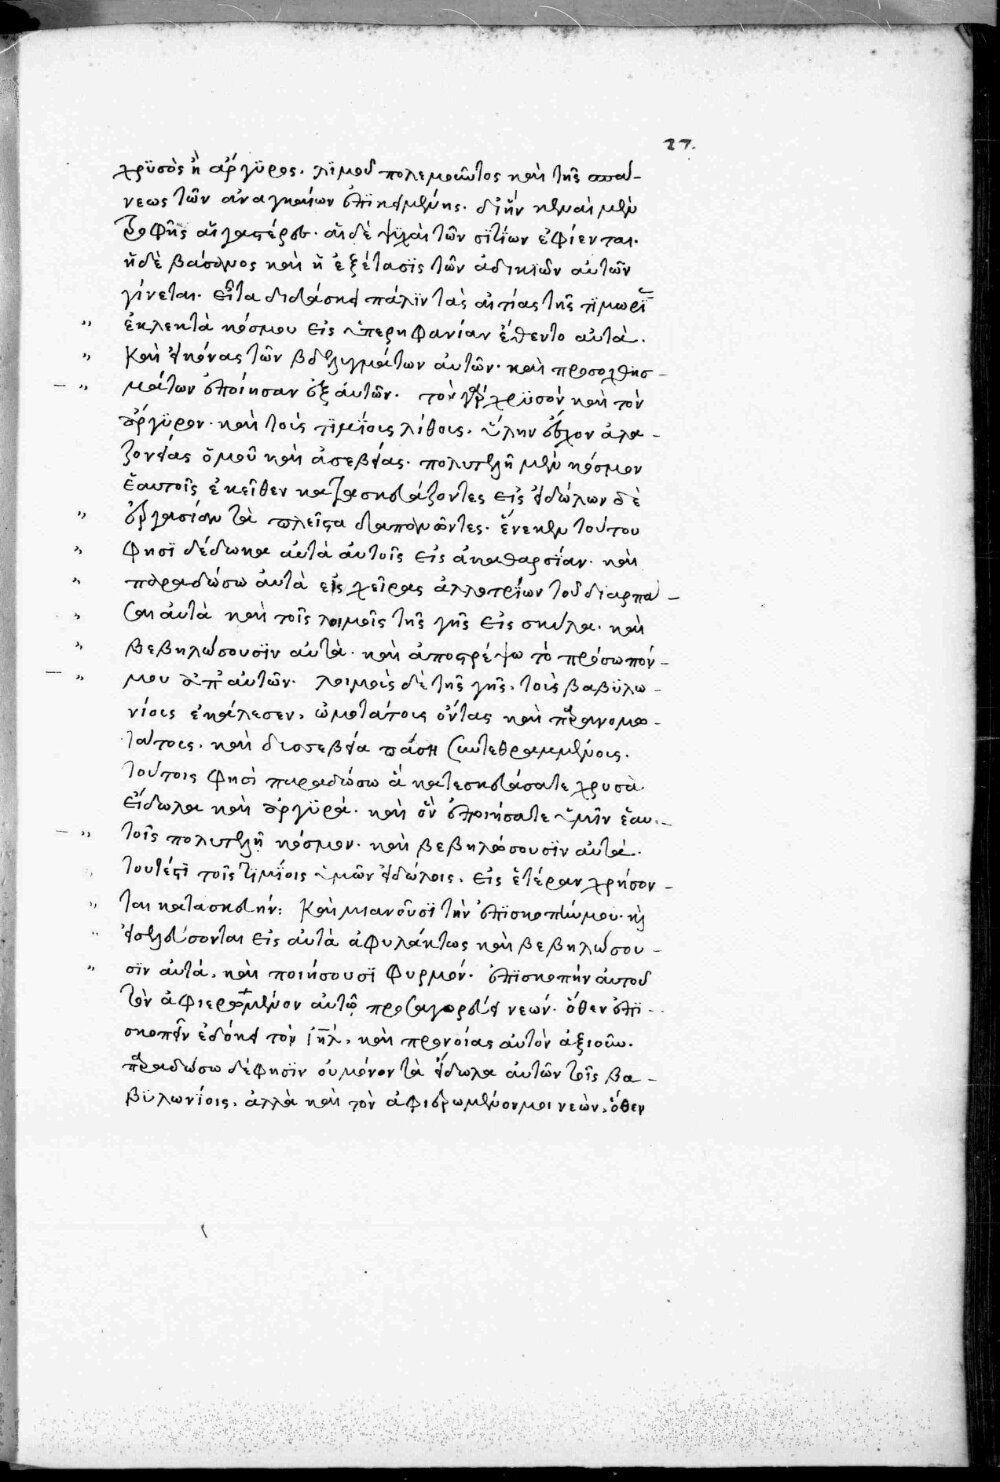 27.
χρϋσὸς ἢ ἄργϋρος. λϊμοῦ πολεμοῦντος καὶ τῆς σπά-
νεως τῶν ἀναγκαίων ἐπϊκειμένης. δι ἣν κεναὶ μὲν
τροφῆς αἱ γαστέρες. αἱ δὲ ψϋχαὶ τῶν σϊτίων ἐφίενται.
ἡ δὲ βάσανος καὶ ἡ ἐξέτασϊς τῶν ἀδικϊῶν αὐτῶν
γίνεται. εἶτα διδάσκει πάλϊν τὰς αἰτίας τῆς τϊμωρί
ἐκλεκτὰ κόσμου εἰς ὑπερηφανίαν ἔθεντο αὐτά.
καὶ εἰκόνας τῶν βδελυγμάτων αὐτῶν. καὶ προσοχθισ-
μάτων ἐποίησαν ἐξ αὐτῶν. τὸν γὰρ χρϋσὸν καὶ τὸν
ἄργϋρον. καὶ τοὺς τϊμΐους λίθους. ὕλην ἔσχον ἀλα-
ζονείας ὁμοῦ καὶ ἀσεβείας. πολυτελῆ μὲν κόσμον
ἑαυτοῖς ἐκεῖθεν κατασκευάζοντες εἰς εἰδώλων δὲ
ἐργασίαν τὰ πλεῖστα δαπανῶντες. ἕνεκεν τούτου
φησϊ δέδωκα αὐτὰ αὐτοῖς εἰς ἀκαθαρσίαν. καὶ
παραδώσω αὐτὰ εἰς χεῖρας ἀλλοτρίων τοῦ διαρπά-
σαι αὐτὰ καὶ τοῖς λοιμοῖς τῆς γῆς εἰς σκύλα. καὶ
βεβηλώσουσϊν αὐτά. καὶ ἀποστρέψω τὸ πρόσωπόν-
μου ἀπ' αὐτῶν. λοιμοὺς δὲ τῆς γῆς, τοὺς βαβϋλω-
νίους ἐκάλεσεν, ὠμοτάτους ὄντας καὶ παρανομω-
τάτους. καὶ δυσσεβεία πάσῃ συντεθραμμένους.
τούτοις φησὶ παραδώσω ἃ κατεσκευάσατε χρυσᾶ
εἴδωλα καὶ ἀργϋρᾶ. καὶ ὃν ἐποιήσατε ὑμῖν ἑαυ-
τοῖς πολυτελῆ κόσμον. καὶ βεβηλώσουσϊν αὐτά.
τουτέστι τοῖς τϊμΐοις ὑμῶν εἰδώλοις. εἰς ἑτέραν χρήσον-
ται κατασκευήν: καὶ μιανοῦσϊ τὴν ἐπϊσκοπήν μου. καὶ
εἰσελεύσονται εἰς αὐτὰ ἀφυλάκτως καὶ βεβηλώσου-
σϊν αὐτά. καὶ ποιήσουσϊ φυρμόν. ἐπϊσκοπὴν αὐτοῦ
τὸν ἀφιερωμένον αὐτῷ προσαγορεύει νεών. ὅθεν ἐπϊ-
σκοπεῖν ἐδόκει τὸν ιῆλ. καὶ προνοίας αὐτὸν ἀξιοῦν.
παραδώσω δέ φησϊν οὐ μόνον τὰ εἴδωλα αὐτῶν τοῖς βα-
βϋλωνΐοις. ἀλλὰ καὶ τὸν ἀφιερωμένον μοι νεών. ὅθεν